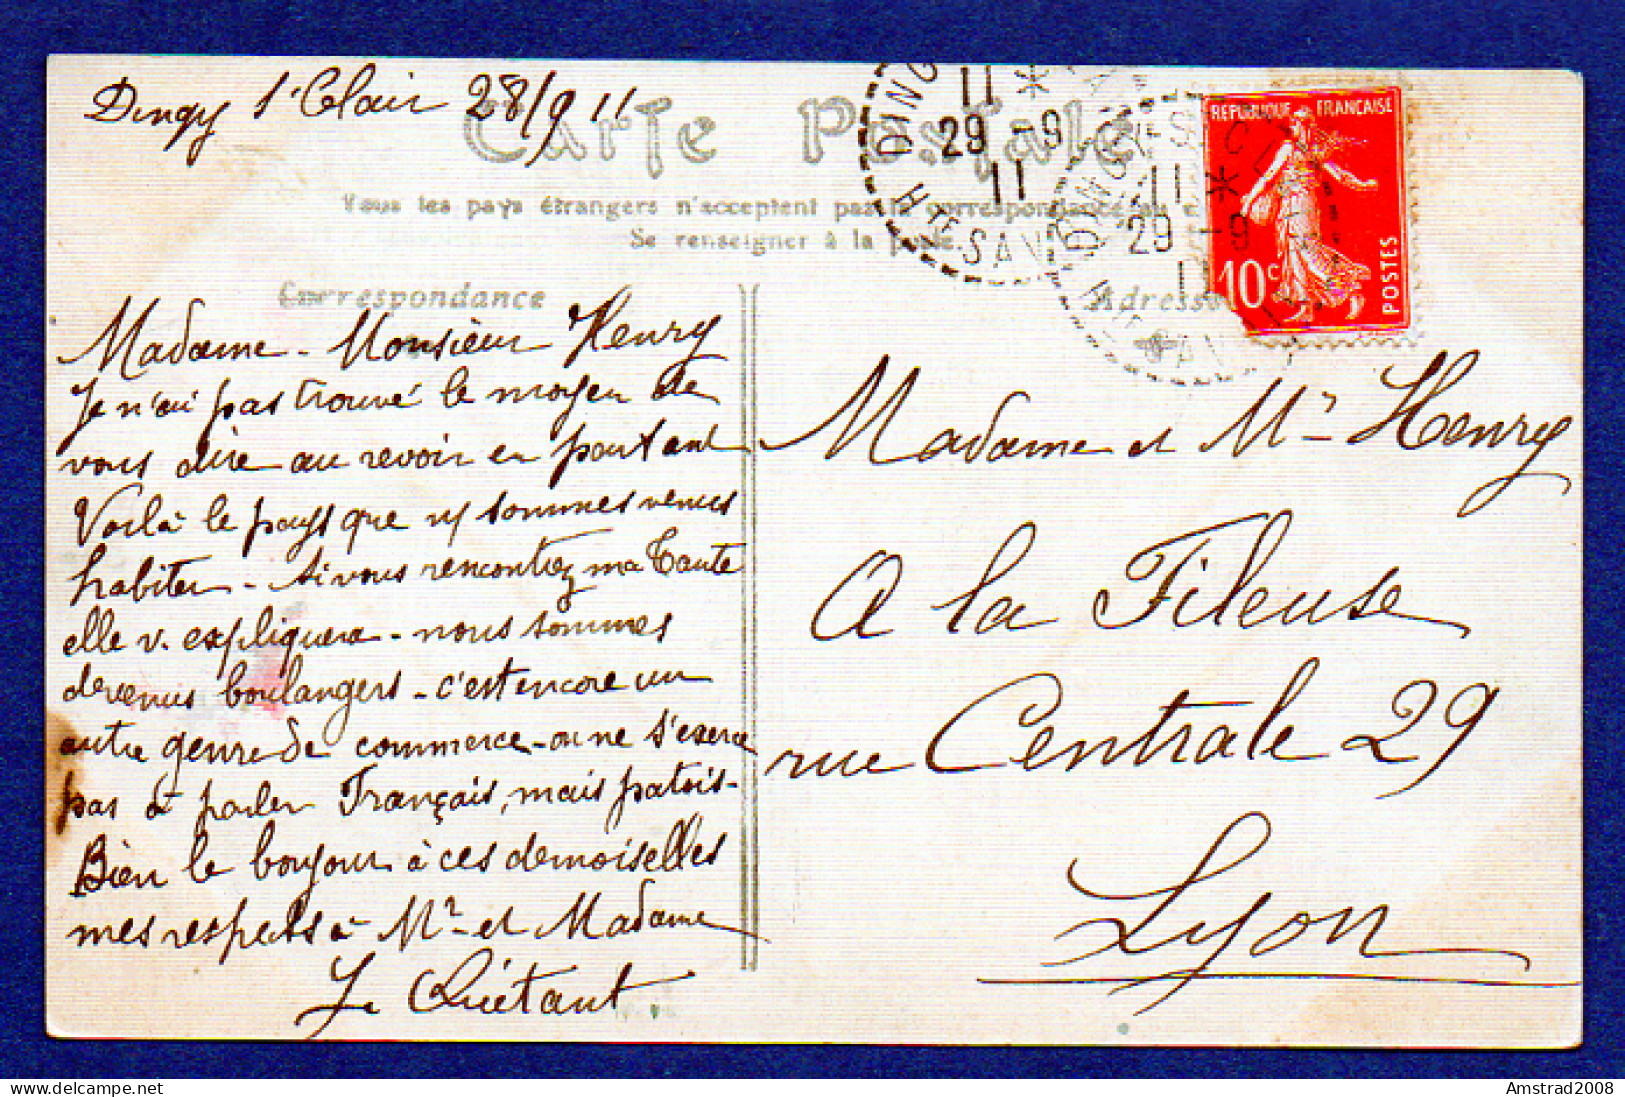 Dingy St Clair 28/9 11
Carte Postale
Tous les pays étrangers n'acceptent pas la correspondance au
Se renseigner à la poste.
Correspondance
Madame - Monsieur Henry
Je n'ai pas trouvé le moyen de
vous dire au revoir en partant
Voilà le pays que ns sommes venus
habiter - si vous rencontrez ma Tante
elle v. expliquera - nous sommes
devenus boulangers - c'est encore un
autre genre de commerce - on ne s'exerce
pas à parler Français, mais patois -
Bien le bonjour à ces demoiselles
mes respects à Mr et Madame
Adresse
REPUBLIQUE FRANÇAISE
10c
POSTES
DINGY-ST-CLAIR
11 *
29 -9
11
HTE SAVOIE
DINGY-ST-CLAIR
11 *
29 -9
11
HTE SAVOIE
Madame et Mr Henry
A la Fileuse
rue Centrale 29
Lyon
Amstrad2008